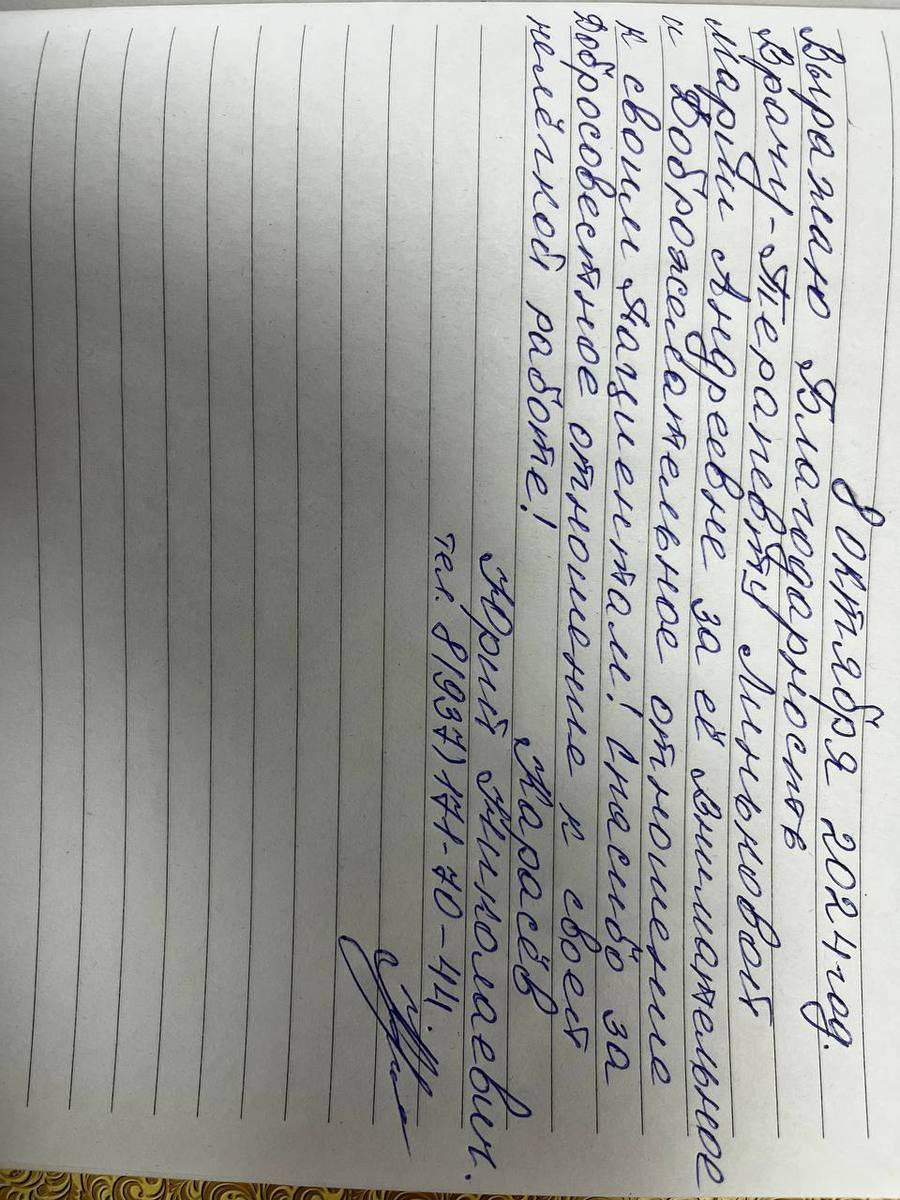 8 октября 2024 год.
Выражаю Благодарность
Врачу-Терапевту Линьновой
Марии Андреевне за её внимательное
и Доброжелательное отношение
к своим Пациентам! Спасибо за
Добросовестное отношение к своей
нелёгкой работе!
Карасёв
Юрий Николаевич.
тел. 8(937)171-70-44.